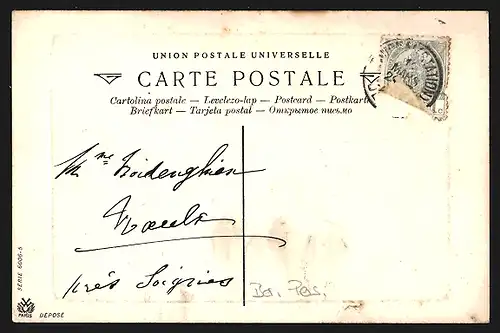 UNION POSTALE UNIVERSELLE
CARTE POSTALE
Cartolina postale — Levelezo-lap — Postcard — Postkart
Briefkart — Tarjeta postal — Открытое письмо
Mme
Naast
près Soignies
Bor. Pos.
SÉRIE 6006-5
PARIS
DÉPOSÉ